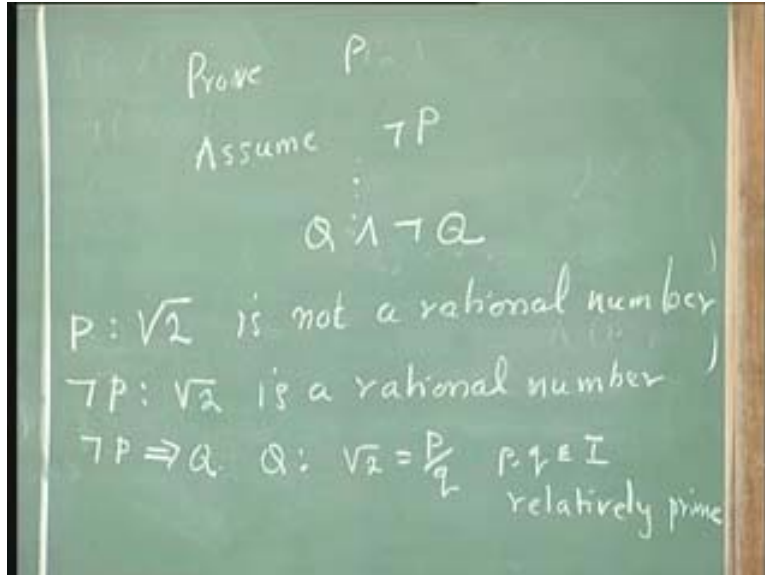 Prove P
Assume ¬P
⋮
Q ∧ ¬Q
P : √2 is not a rational number
¬P : √2 is a rational number
¬P ⇒ Q. Q : √2 = p/q p, q ε I
relatively prime